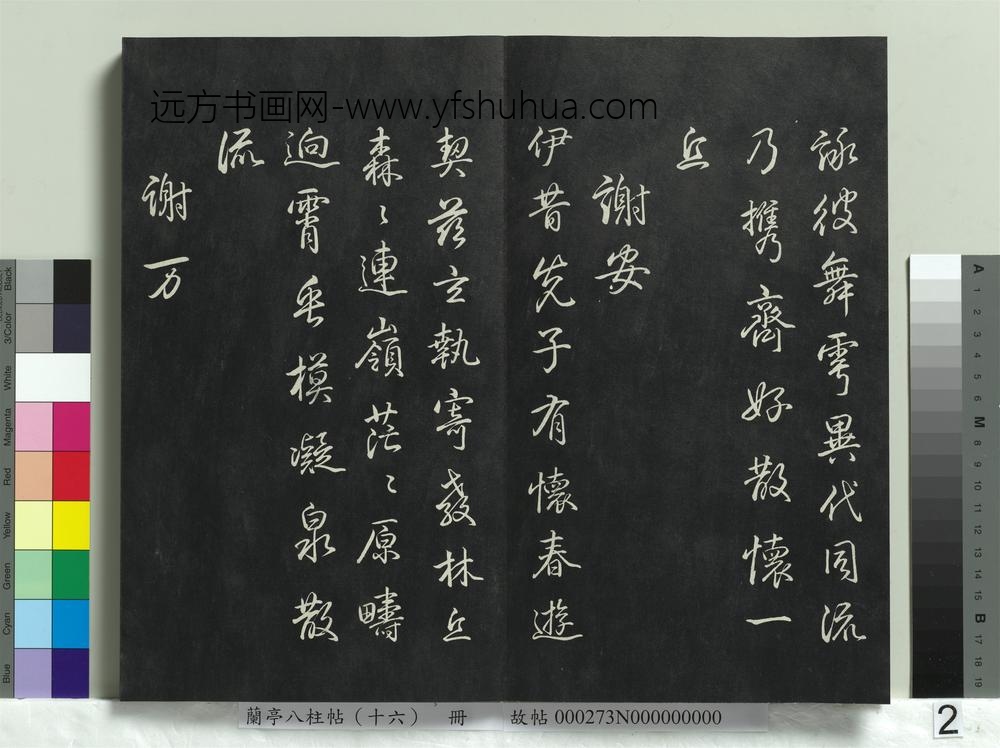 远方书画网-www.yfshuhua.com
詠彼舞雩異代同流
乃携齊好散懷一
丘
謝安
伊昔先子有懷春遊
契茲言執寄敖林丘
森〻連嶺茫〻原疇
逈霄垂模凝泉散
流
謝万
Black
3/Color
White
Magenta
Red
Yellow
Green
Cyan
Blue
A 1 2 3 4 5 6 M 8 9 10 11 12 13 14 15 B 17 18 19
蘭亭八柱帖（十六） 冊 故帖 000273N000000000
2